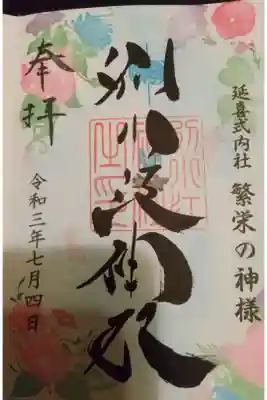 延喜式内社 繁栄の神様
別小江神社
奉拝
令和三年七月四日